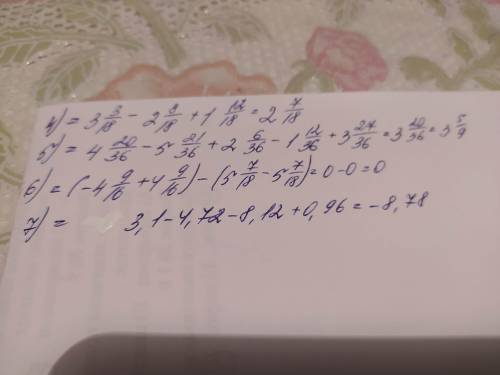 4) = 3 3/18 - 2 8/18 + 1 12/18 = 2 7/18
5) = 4 20/36 - 5 21/36 + 2 6/36 - 1 12/36 + 3 27/36 = 3 20/36 = 3 5/9
6) = (-4 9/16 + 4 9/16) - (5 7/18 - 5 7/18) = 0 - 0 = 0
7) = 3,1 - 4,72 - 8,12 + 0,96 = -8,78